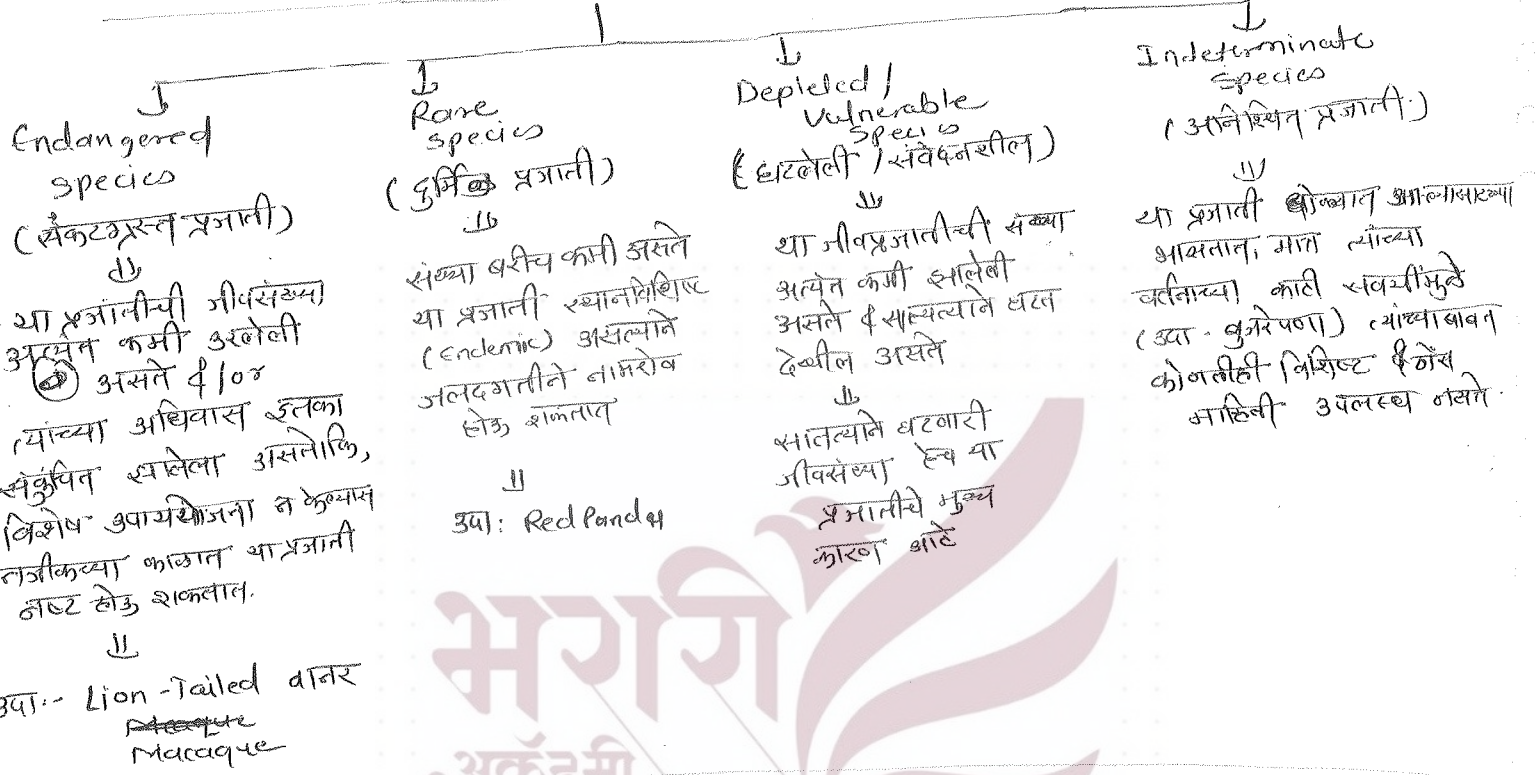 Endangered
species
(संकटग्रस्त प्रजाती)
या प्रजातीची जीवसंख्या
अत्यंत कमी उरलेली
असते & / or
त्यांच्या अधिवास इतका
संकुचित झालेला असतो कि,
विशेष उपाययोजना न केल्यास
नजीकच्या काळात या प्रजाती
नष्ट होऊ शकतात.
उदा:- Lion-Tailed वानर
Macaque
Rare
species
(दुर्मिळ प्रजाती)
संख्या बरीच कमी असते
या प्रजाती स्थानविशिष्ट
(Endemic) असल्याने
जलदगतीने नामशेष
होऊ शकतात
उदा: Red Panda
Depleted /
Vulnerable
Species
(घटलेली / संवेदनशील)
या जीवप्रजातीची संख्या
अत्यंत कमी झालेली
असते & सातत्याने घटत
देखील असते
सातत्याने घटणारी
जीवसंख्या हेच या
प्रजातीचे मुख्य
कारण आहे
Indeterminate
Species
(अनिश्चित प्रजाती)
या प्रजाती धोक्यात आल्यासारख्या
भासतात, मात्र त्यांच्या
वर्तनाच्या काही सवयींमुळे
(उदा - बुजरेपणा) त्यांच्याबाबत
कोणतीही विशिष्ट & ठोस
माहिती उपलब्ध नसते.
भगीरथ
अकॅडमी